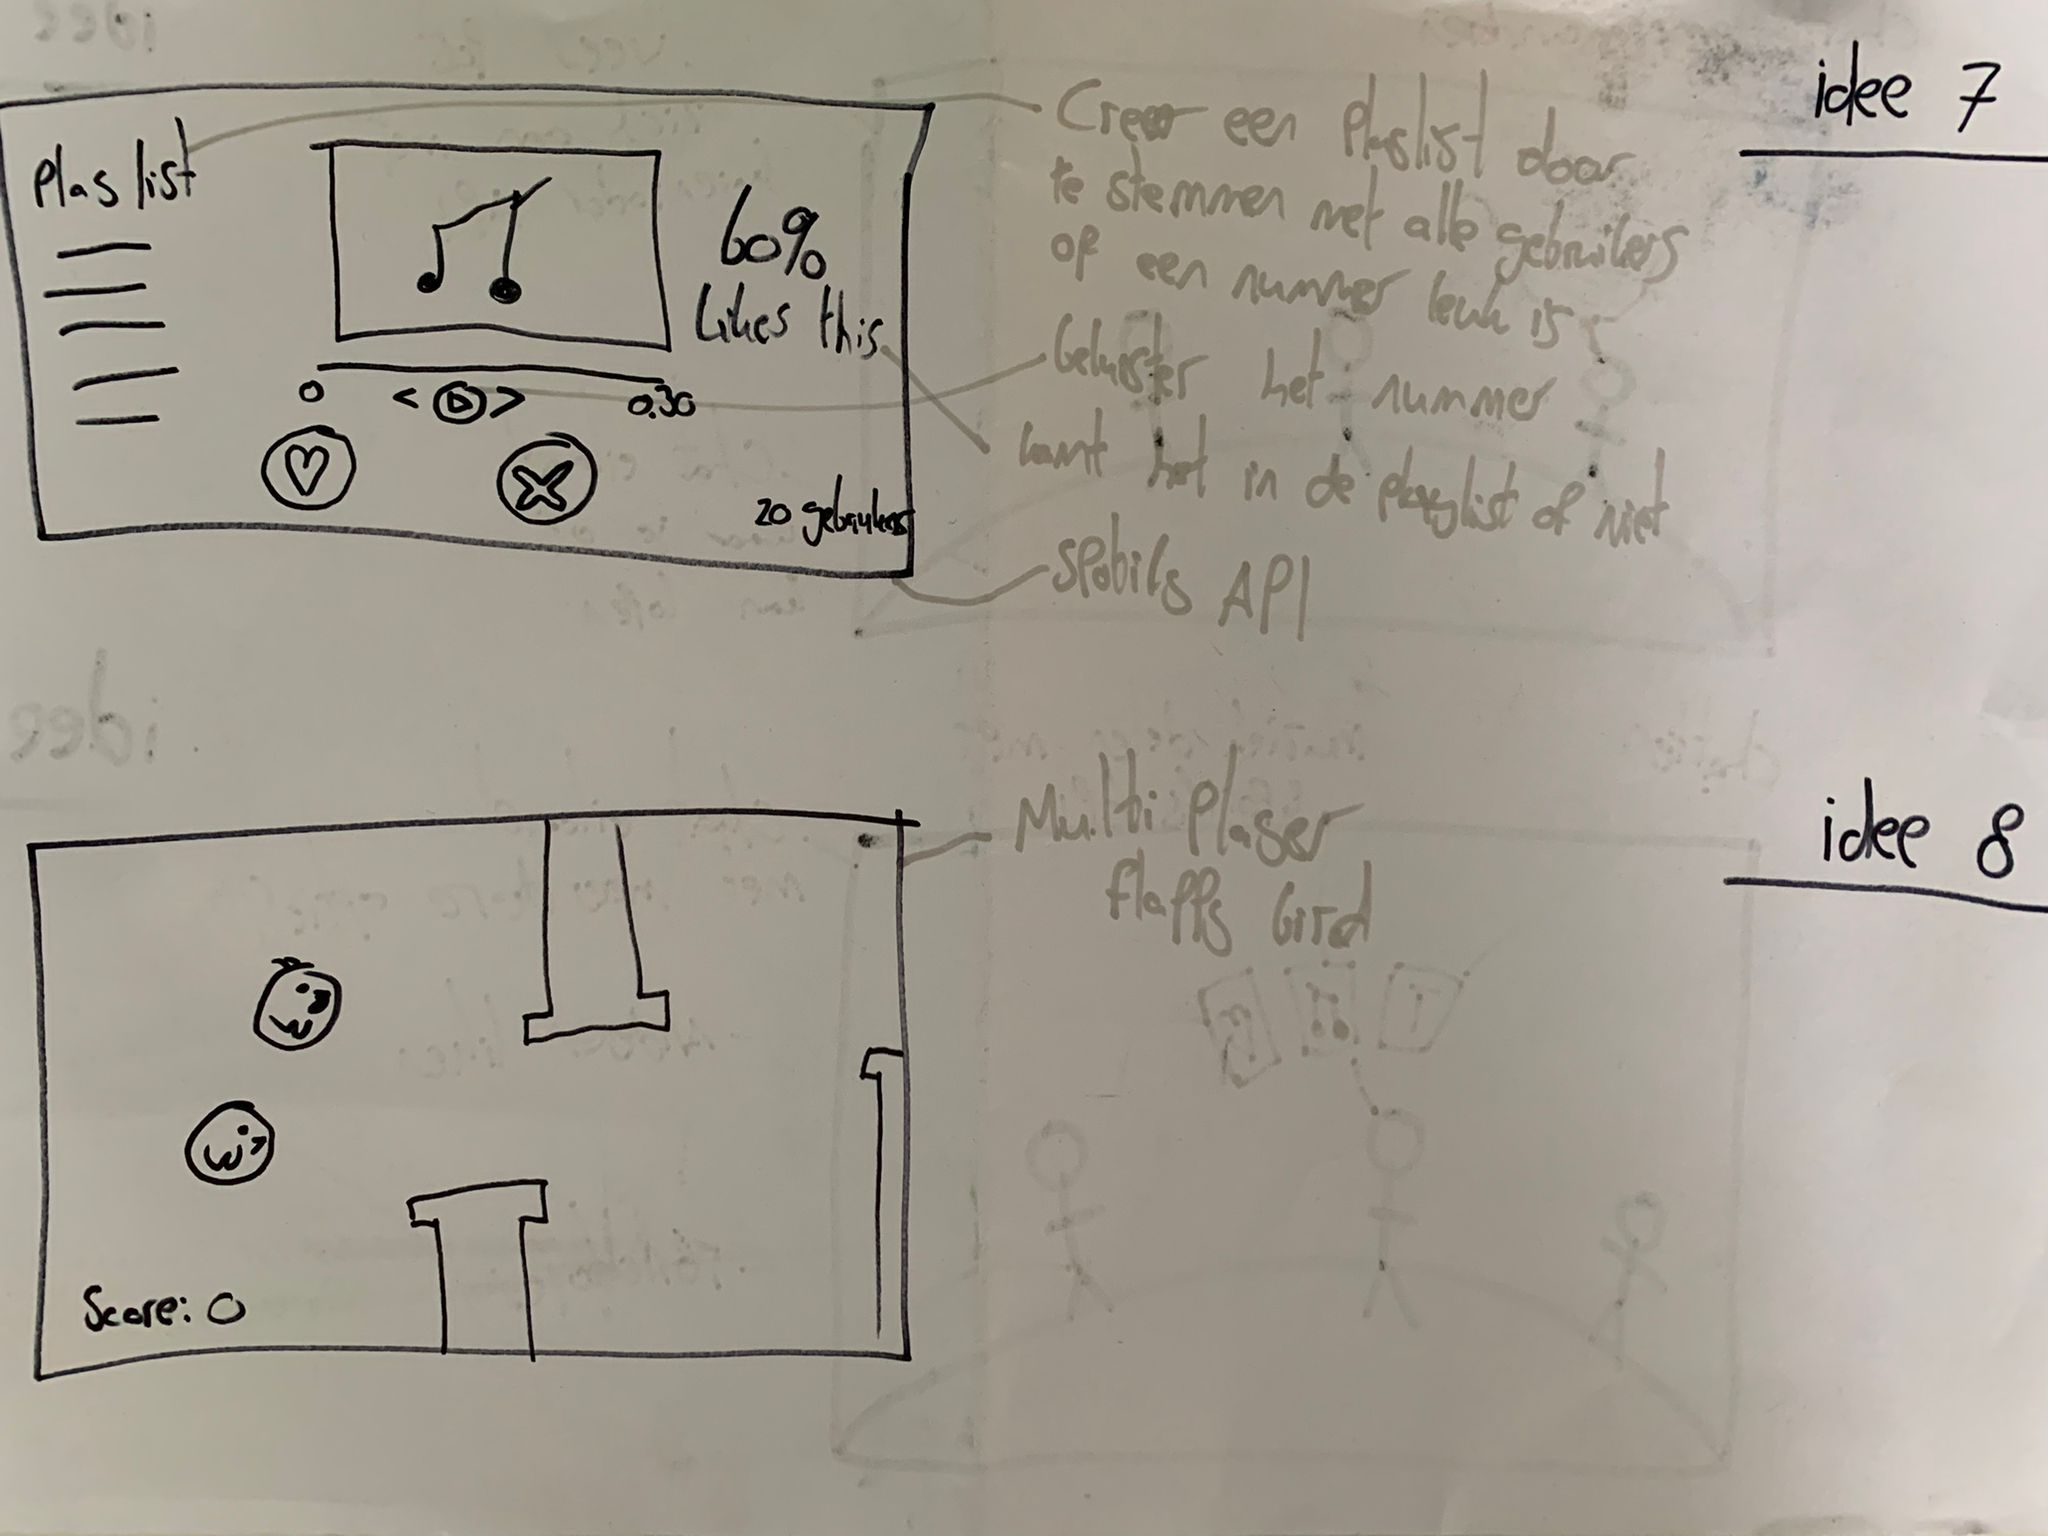 idee 7
Playlist
60%
Likes this
0 < > 0.30
20 gebruikers
Creeer een Playlist door
te stemmen met alle gebruikers
of een nummer leuk is
beluister het nummer
komt het in de playlist of niet
Spotify API
idee 8
Multi Player
flappy bird
Score: 0